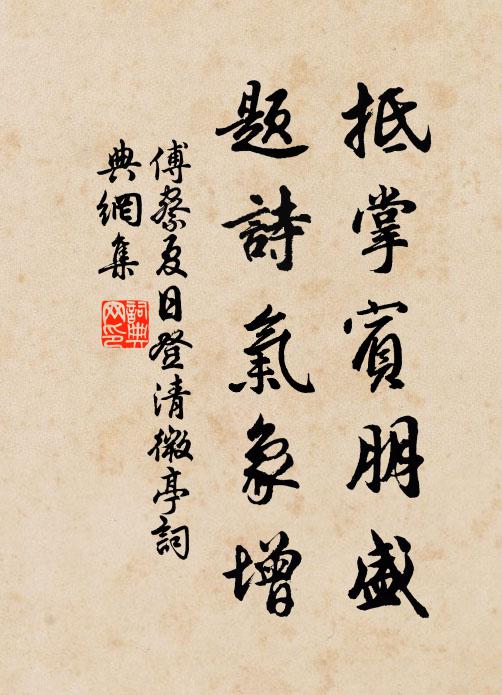 抵掌賓朋盛
題詩氣象增
傅察夏日登清微亭詞
典網集
詞典網印